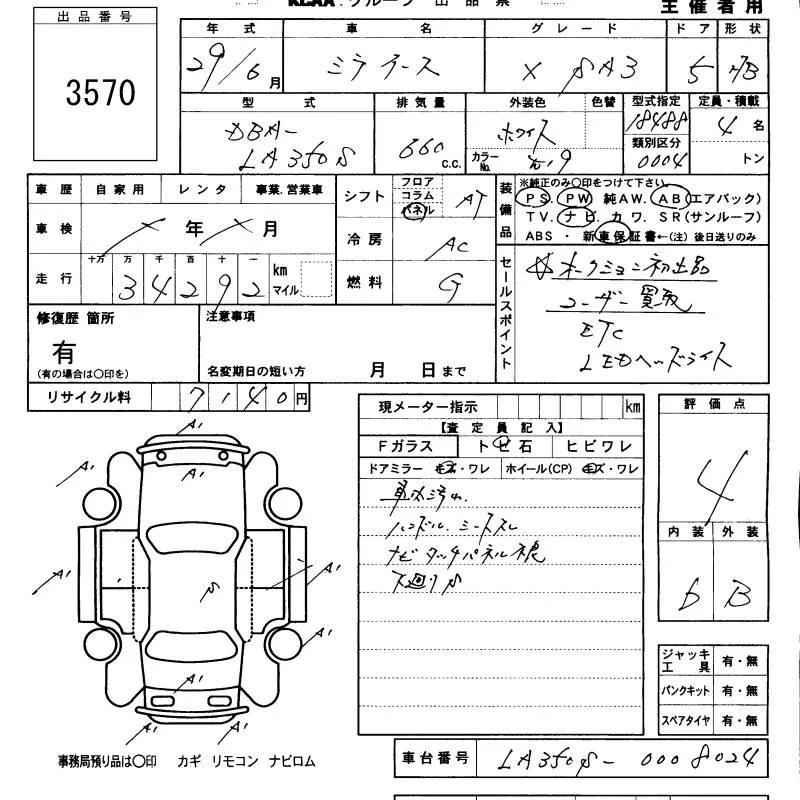 KCAA グループ 出品票
主催者用
出品番号
3570
年式 車名 グレード ドア 形状
29/6月 ミライース X SA3 5 HB
型式 排気量 外装色 色替 型式指定 定員・積載
DBA-
LA350S
660 c.c.
ホワイト
カラーNo.
18488
類別区分
0004
4名
トン
車歴 自家用 レンタ 事業.営業車
シフト フロア コラム パネル AT
装備品
※純正のみ〇印をつけて下さい。
PS. PW 純AW. AB(エアバック)
TV. ナビ. カワ. SR(サンルーフ)
ABS ・ 新車保証書←(注) 後日送りのみ
車検 年 月
冷房 AC
走行 十万 万 千 百 十 一
34292 km マイル
燃料 G
セールスポイント
オークション初出品
ユーザー買取
ETC
LEDヘッドライト
修復歴 箇所
有
(有の場合は〇印を)
注意事項
名変期日の短い方 月 日まで
リサイクル料 7140円
現メーター指示 km
【査定員記入】
Fガラス トビ石 ヒビワレ
ドアミラー キズ・ワレ ホイール(CP) キズ・ワレ
車内汚れ
ハンドル.シートスレ
ナビタッチパネル
下廻りS
評価点
4
内装 外装
B
A1
A1
A1
A1
A1
S
A1
A1
A1
A1
ジャッキ工具 有・無
パンクキット 有・無
スペアタイヤ 有・無
事務局預り品は〇印 カギ リモコン ナビロム
車台番号 LA350S-0008024